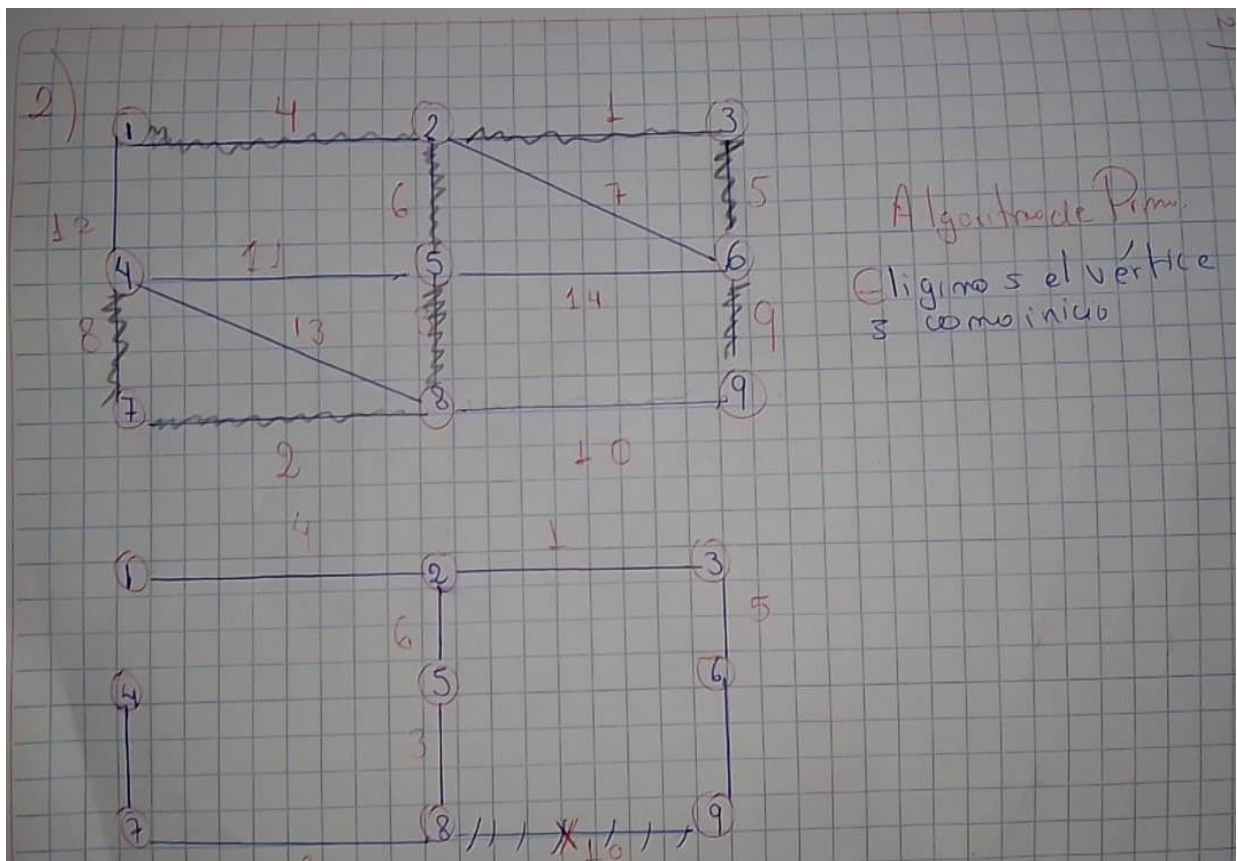 2)
1 4 2 1 3
12 6 7 5
4 11 5 14 6
8 13 9
7 2 8 10 9
Algoritmo de Prim.
Eligimos el vértice
3 como inicio
1 4 2 1 3
6 5
4 5 6
3
7 8 X 10 9